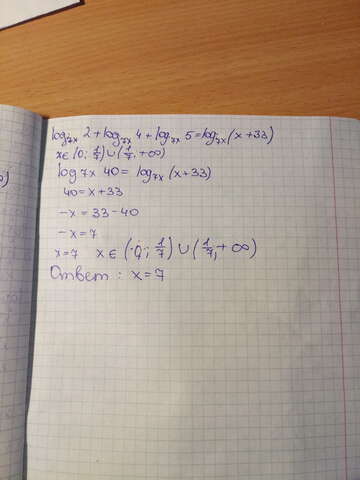 log₇ₓ 2 + log₇ₓ 4 + log₇ₓ 5 = log₇ₓ (x+33)
x ∈ (0; 1/7) ∪ (1/7, +∞)
log 7x 40 = log₇ₓ (x+33)
40 = x+33
-x = 33-40
-x = 7
x=7 x ∈ (0; 1/7) ∪ (1/7, +∞)
Ответ : x=7